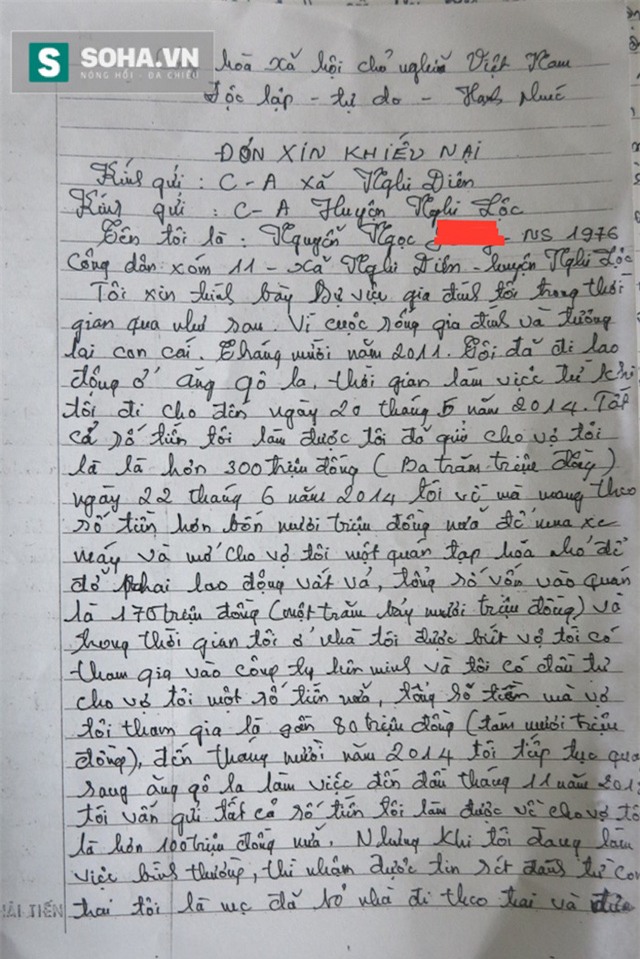 SOHA.VN
NÓNG HỔI - ĐA CHIỀU
hoà xã hội chủ nghĩa Việt Nam
Độc lập - tự do - Hạnh phúc
ĐƠN XIN KHIẾU NẠI
Kính gửi : C-A xã Nghi Diên
Kính gửi : C-A Huyện Nghi Lộc
Tên tôi là : Nguyễn Ngọc - NS 1976
Công dân xóm 11 - xã Nghi Diên - huyện Nghi Lộc
Tôi xin trình bày sự việc gia đình tôi trong thời
gian qua như sau. Vì cuộc sống gia đình và tương
lai con cái. Tháng mười năm 2011. Tôi đã đi lao
động ở ăng gô la, thời gian làm việc từ khi
tôi đi cho đến ngày 20 tháng 5 năm 2014. Tất
cả số tiền tôi làm được tôi đã gửi cho vợ tôi
là là hơn 300 triệu đồng (Ba trăm triệu đồng)
ngày 22 tháng 6 năm 2014 tôi về mà mang theo
số tiền hơn bốn mươi triệu đồng nữa để mua xe
máy và mở cho vợ tôi một quán tạp hóa nhỏ để
đỡ phải lao động vất vả, tổng số vốn vào quán
là 170 triệu đồng (một trăm bảy mươi triệu đồng) và
trong thời gian tôi ở nhà tôi được biết vợ tôi có
tham gia vào công ty liên minh và tôi có đầu tư
cho vợ tôi một số tiền nữa, tổng số tiền mà vợ
tôi tham gia là gần 80 triệu đồng (tám mươi triệu
đồng), đến tháng mười năm 2014 tôi tiếp tục qua
sang ăng gô la làm việc đến đầu tháng 11 năm 201
tôi vẫn gửi tất cả số tiền tôi làm được về cho vợ tô
là hơn 100 triệu đồng nữa. Nhưng khi tôi đang làm
việc bình thường, thì nhận được tin sét đánh từ con
trai tôi là mẹ đã bỏ nhà đi theo trai và
HẢI TIẾN